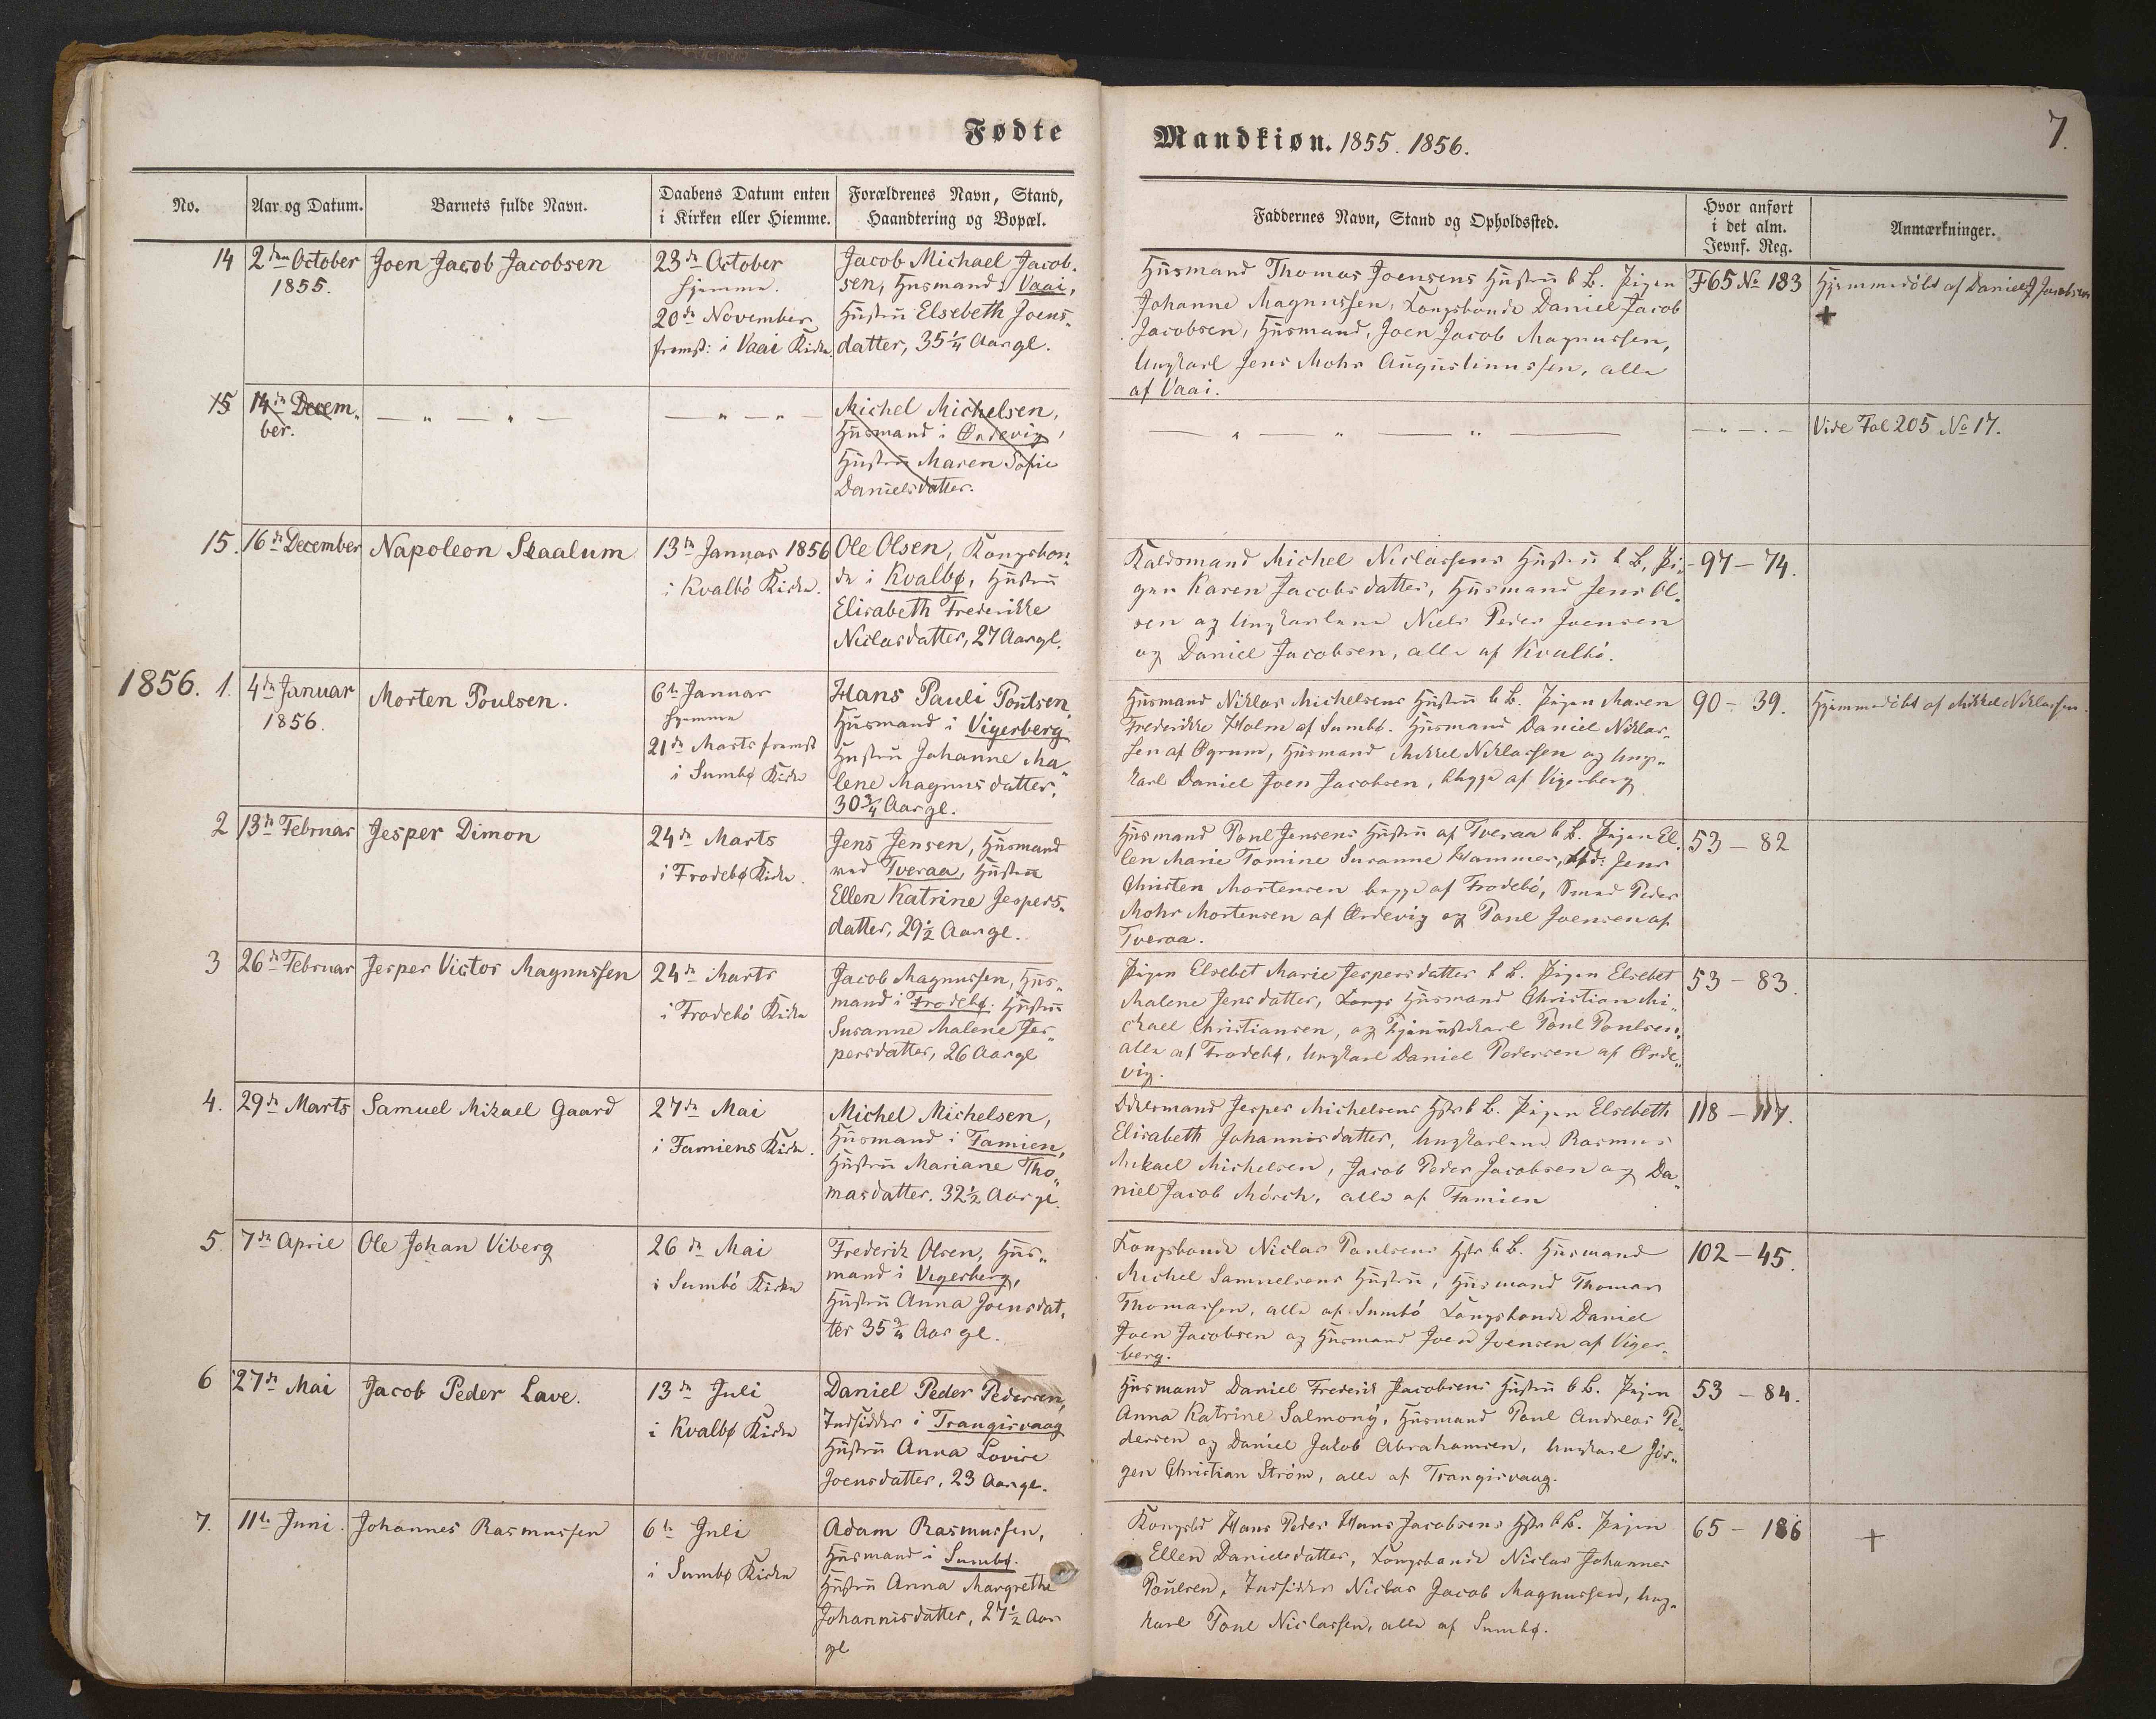 Fødte
No.
Aar og Datum.
Barnets fulde Navn.
Daabens Datum enten
i Kirken eller Hiemme.
Forældrenes Navn, Stand,
Haandtering og Bopæl.
14
2den October
1855.
Joen Jacob Jacobsen
23de October
hjemme.
20de November
fremst: i Vaai Kirke
Jacob Michael Jacob-
sen, Husmand i Vaai,
Hustru Elsebeth Joens-
datter, 35¼ Aar gl.
15
14de Decem-
ber.
— " — " —
— " — " —
Michel Michelsen,
Husmand i Ørdevig,
Hustru Maren Sofie
Danielsdatter.
15.
16de December
Napoleon Skaalum
13de Januar 1856
i Kvalbö Kirke.
Ole Olsen, Kongsbon-
de i Kvalbø, Hustru
Elisabeth Frederikke
Niclasdatter, 27 Aar gl.
1856. 1.
4de Januar
1856.
Morten Poulsen.
6te Januar
hjemme
21de Marts fremst
i Sumbø Kirke
Hans Pauli Poulsen,
Husmand i Vigerberg
Hustru Johanne Ma-
lene Magnusdatter,
30¾ Aar gl.
2
13de Februar
Jesper Dimon
24de Marts
i Frodebø Kirke.
Jens Jensen, Husmand
ved Tveraa, Hustru
Ellen Katrine Jespers-
datter, 29½ Aar gl.
3
26de Februar
Jesper Victor Magnussen
24de Marts
i Frodebö Kirke
Jacob Magnussen, Hus-
mand i Frodebø. Hustru
Susanne Malene Jes-
persdatter, 26 Aar gl
4.
29de Marts
Samuel Mikael Gaard
27de Mai
i Famiens Kirke.
Michel Michelsen,
Husmand i Famien,
Hustru Mariane Tho-
masdatter. 32½ Aar gl.
5
7de April
Ole Johan Viberg
26de Mai
i Sumbö Kirke
Frederik Olsen, Hus-
mand i Vigerberg,
Hustru Anna Joensdat-
ter 35¾ Aar gl.
6
27de Mai
Jacob Peder Lave.
13de Juli
i Kvalbø Kirke
Daniel Peder Pedersen,
Indsidder i Trangisvaag
Hustru Anna Lovise
Joensdatter, 23 Aar gl.
7.
11te Juni.
Johannes Rasmussen
6te Juli
i Sumbø Kirke
Adam Rasmussen,
Husmand i Sumbø.
Hustru Anna Margrethe
Johannisdatter, 27½ Aar
gl
Mandkiøn. 1855. 1856.
7.
Faddernes Navn, Stand og Opholdssted.
Hvor anført
i det alm.
Jevnf. Reg.
Anmærkninger.
Husmand Thomas Joensens Hustru b. B. Pigen
Johanne Magnussen, Kongsbonde Daniel Jacob
Jacobsen, Husmand, Joen Jacob Magnussen,
Ungkarl Jens Mohr Augustinussen, alle
af Vaai.
F 65 No 183
Hjemmedöbt af Daniel J Jacobsen
+
— " — " — " —
— " — " —
Vide Fol 205 No 17.
Kaldsmand Michel Niclassens Hustru b. B. Pi-
gen Karen Jacobsdatter, Husmand Jens Ol-
sen og Ungkarlene Niels Peder Joensen
og Daniel Jacobsen, alle af Kvalbö.
- 97 - 74.
Husmand Niklas Michelsens Hustru b. B. Pigen Maren
Frederikke Holm af Sumbø. Husmand Daniel Niklas-
sen af Øgrum, Husmand Mikkel Niklassen og Ung-
karl Daniel Joen Jacobsen, begge af Vigerberg
90 - 39.
Hjemmedöbt af Mikkel Niklassen.
Husmand Poul Jensens Hustru af Tveraa b. B. Pigen El-
len Marie Tomine Susanne Hammer, Jens
Christen Mortensen begge af Frodebö, Smed Peder
Mohr Mortensen af Ørdevig og Poul Joensen af
Tveraa.
53 - 82
Pigen Elsebet Marie Jespersdatter b. B. Pigen Elsebet
Malene Jensdatter, Kongs Husmand Christian Mi-
chael Christiansen, og Tjenestekarl Poul Poulsen,
alle af Frodebø, Ungkarl Daniel Pedersen af Ørde-
vig.
53 - 83.
Odelsmand Jesper Michelsens Hstr b. B. Pigen Elsebeth
Elisabeth Johannisdatter, Ungkarlene Rasmus
Mikael Michelsen, Jacob Peder Jacobsen og Da-
niel Jacob Mörch, alle af Famien
118 - 117.
Kongsbonde Niclas Poulsens Hstr b. B. Husmand
Michel Samuelsens Hustru, Husmand Thomas
Thomassen, alle af Sumbö Kongsbonde Daniel
Joen Jacobsen og Husmand Joen Joensen af Viger-
berg.
102 - 45.
Husmand Daniel Frederik Jacobsens Hustru b. B. Pigen
Anna Katrine Salmony, Husmand Poul Andreas Pe-
dersen og Daniel Jakob Abrahamsen, Ungkarl Jör-
gen Christian Ström, alle af Trangisvaag.
53 - 84.
Kongsbd Hans Peder Hans Jacobsens Hstr b. B. Pigen
Ellen Danielsdatter, Kongsbonde Niclas Johannes
Poulsen, Indsidder Niclas Jacob Magnussen, Ung-
karl Poul Niclassen, alle af Sumbø.
65 - 186
+